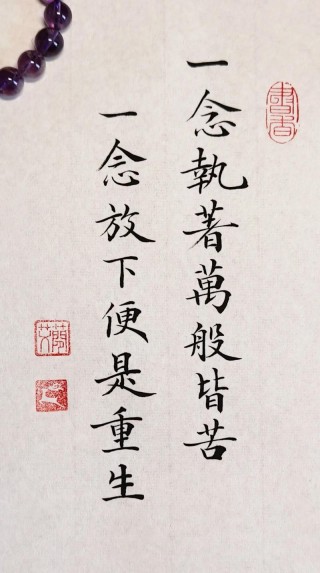 書香
一念執著萬般皆苦
一念放下便是重生